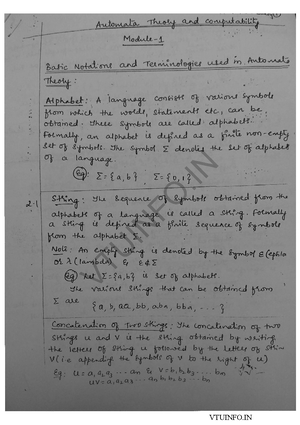 Automata Theory and Computability
Module-1
Basic Notations and Terminologies used in Automata
Theory:
Alphabet: A language consists of various symbols
from which the words, statements etc, can be
obtained. These symbols are called alphabets.
Formally, an alphabet is defined as a finite non-empty
set of symbols. The symbol Σ denotes the set of alphabet
of a language.
eg: Σ={a,b} Σ={0,1}
String: The sequence of symbols obtained from the
alphabets of a language is called a string. Formally
a string is defined as a finite sequence of symbols
from the alphabet Σ.
Note: An empty string is denoted by the symbol ε
or λ (lambda)
eg: Let Σ={a,b} is set of alphabets.
The various strings that can be obtained from
Σ are
{a, b, aa, bb, aba, bba, ...}
Concatenation of Two Strings: The concatenation of two
strings u and v is the string obtained by writing
the letters of string u followed by the letters of string
v (i.e appending the symbols of v to the right of u)
Eg: u = a₁a₂a₃ ... an & v = b₁b₂b₃ ... bn
uv = a₁a₂a₃ ... an b₁b₂b₃ ... bn
VTUINFO.IN
VTUINFO.IN